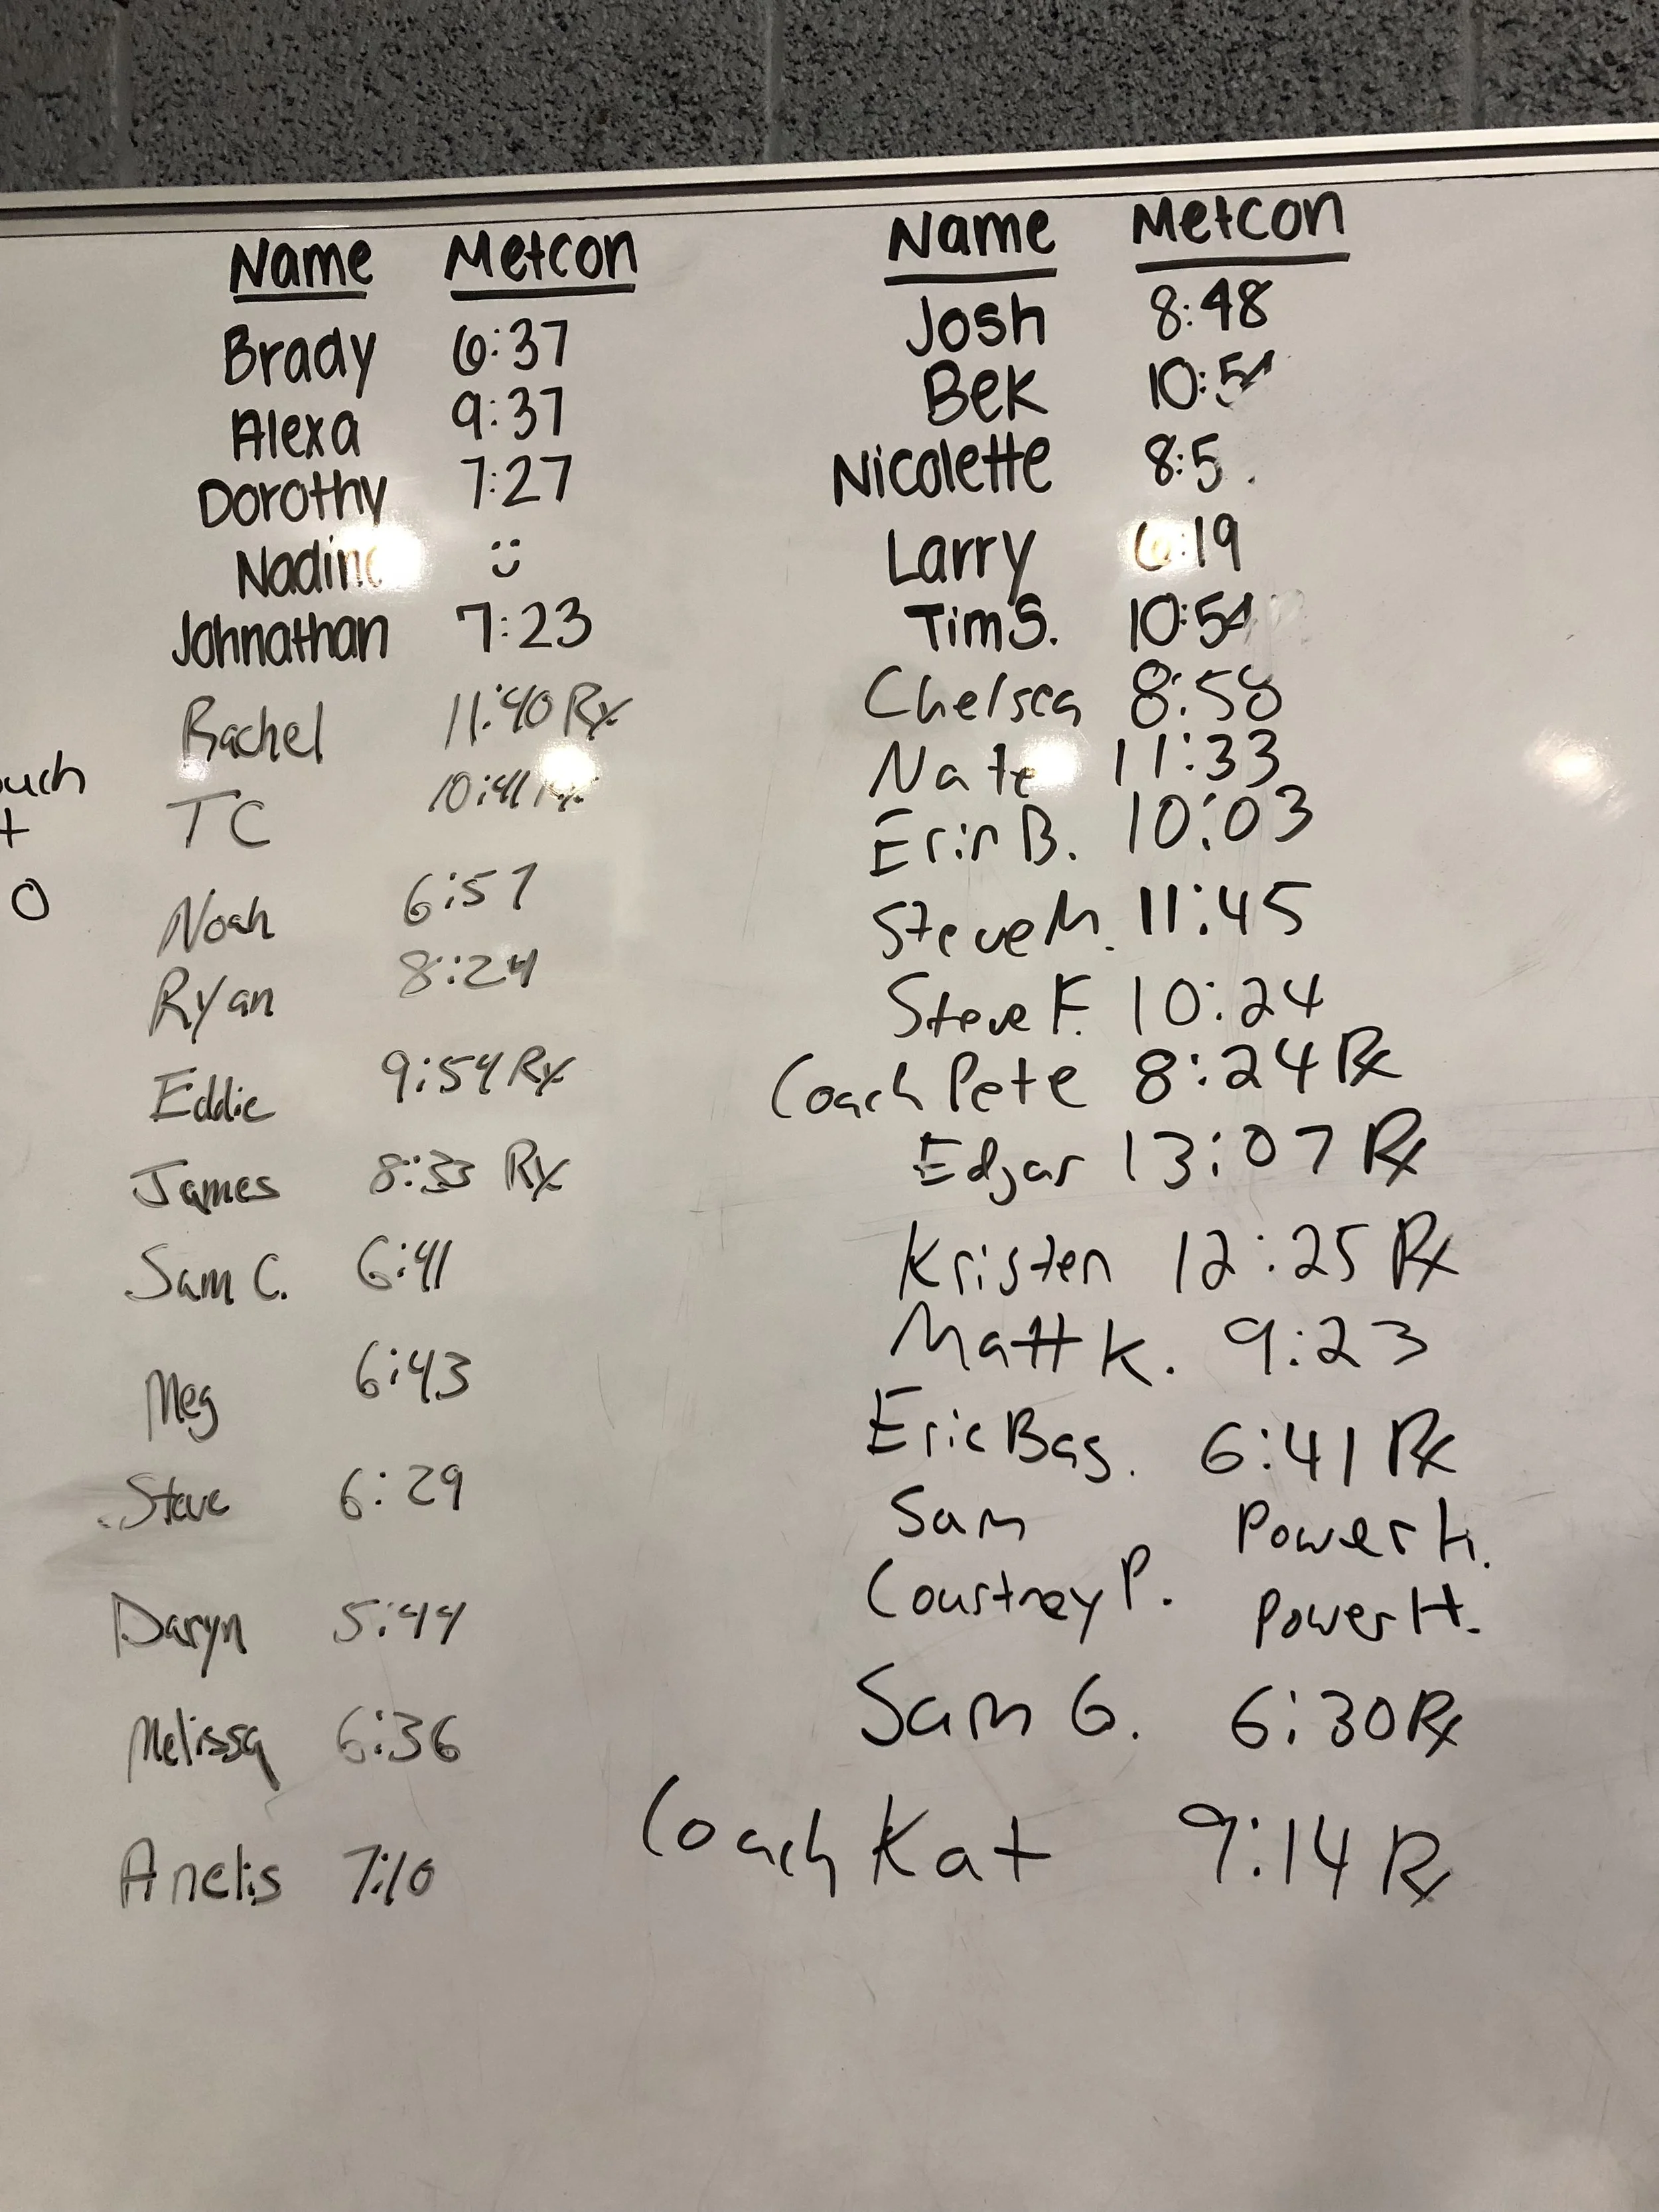 Name Metcon
Brady 6:37
Alexa 9:37
Dorothy 7:27
Nadine :)
Johnathan 7:23
Rachel 11:40 Rx
TC 10:41 Rx
Noah 6:57
Ryan 8:24
Eddie 9:54 Rx
James 8:33 Rx
Sam C. 6:41
Meg 6:43
Steve 6:29
Daryn 5:44
Melissa 6:36
Anelis 7:10
Name Metcon
Josh 8:48
Bek
Nicolette
Larry 6:19
Tim S.
Chelsea 8:58
Nate 11:33
Erin B. 10:03
Steve M. 11:45
Steve F. 10:24
Coach Pete 8:24 Rx
Edgar 13:07 Rx
Kristen 12:25 Rx
Matt K. 9:23
Eric Bag. 6:41 Rx
Sam Power H.
Courtney P. Power H.
Sam G. 6:30 Rx
Coach Kat 9:14 Rx